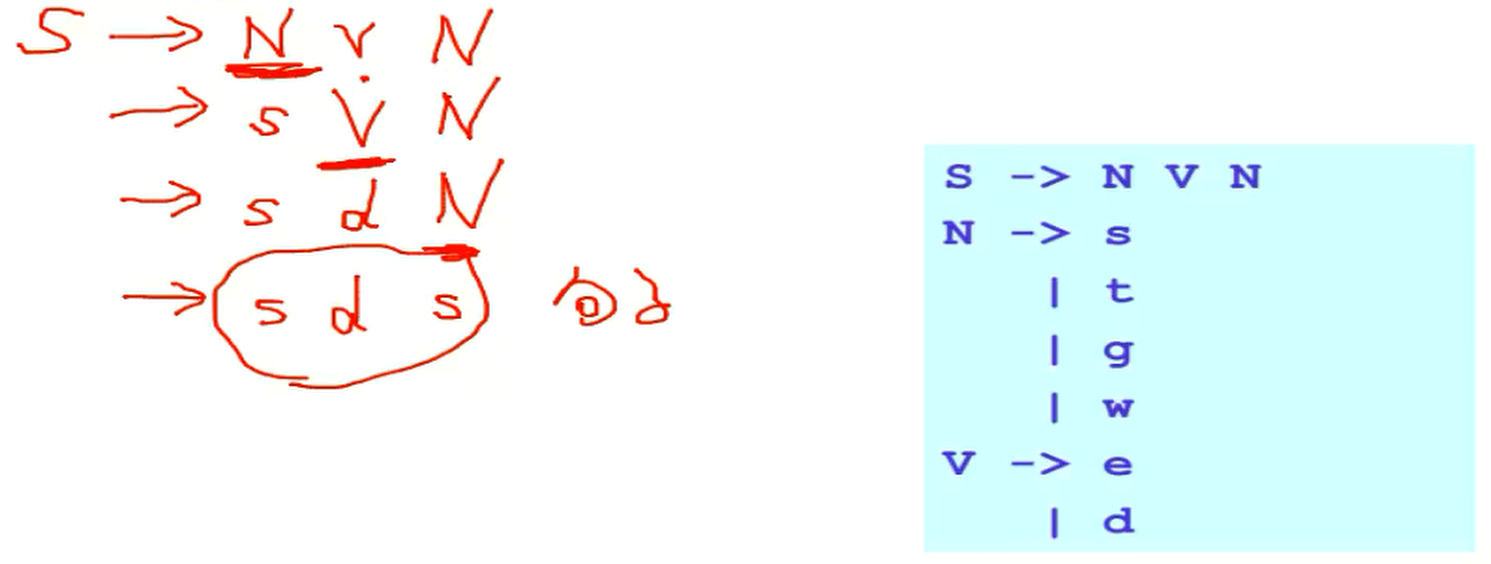 S → N v N
→ s V N
→ s d N
→ s d s
S -> N V N
N -> s
| t
| g
| w
V -> e
| d